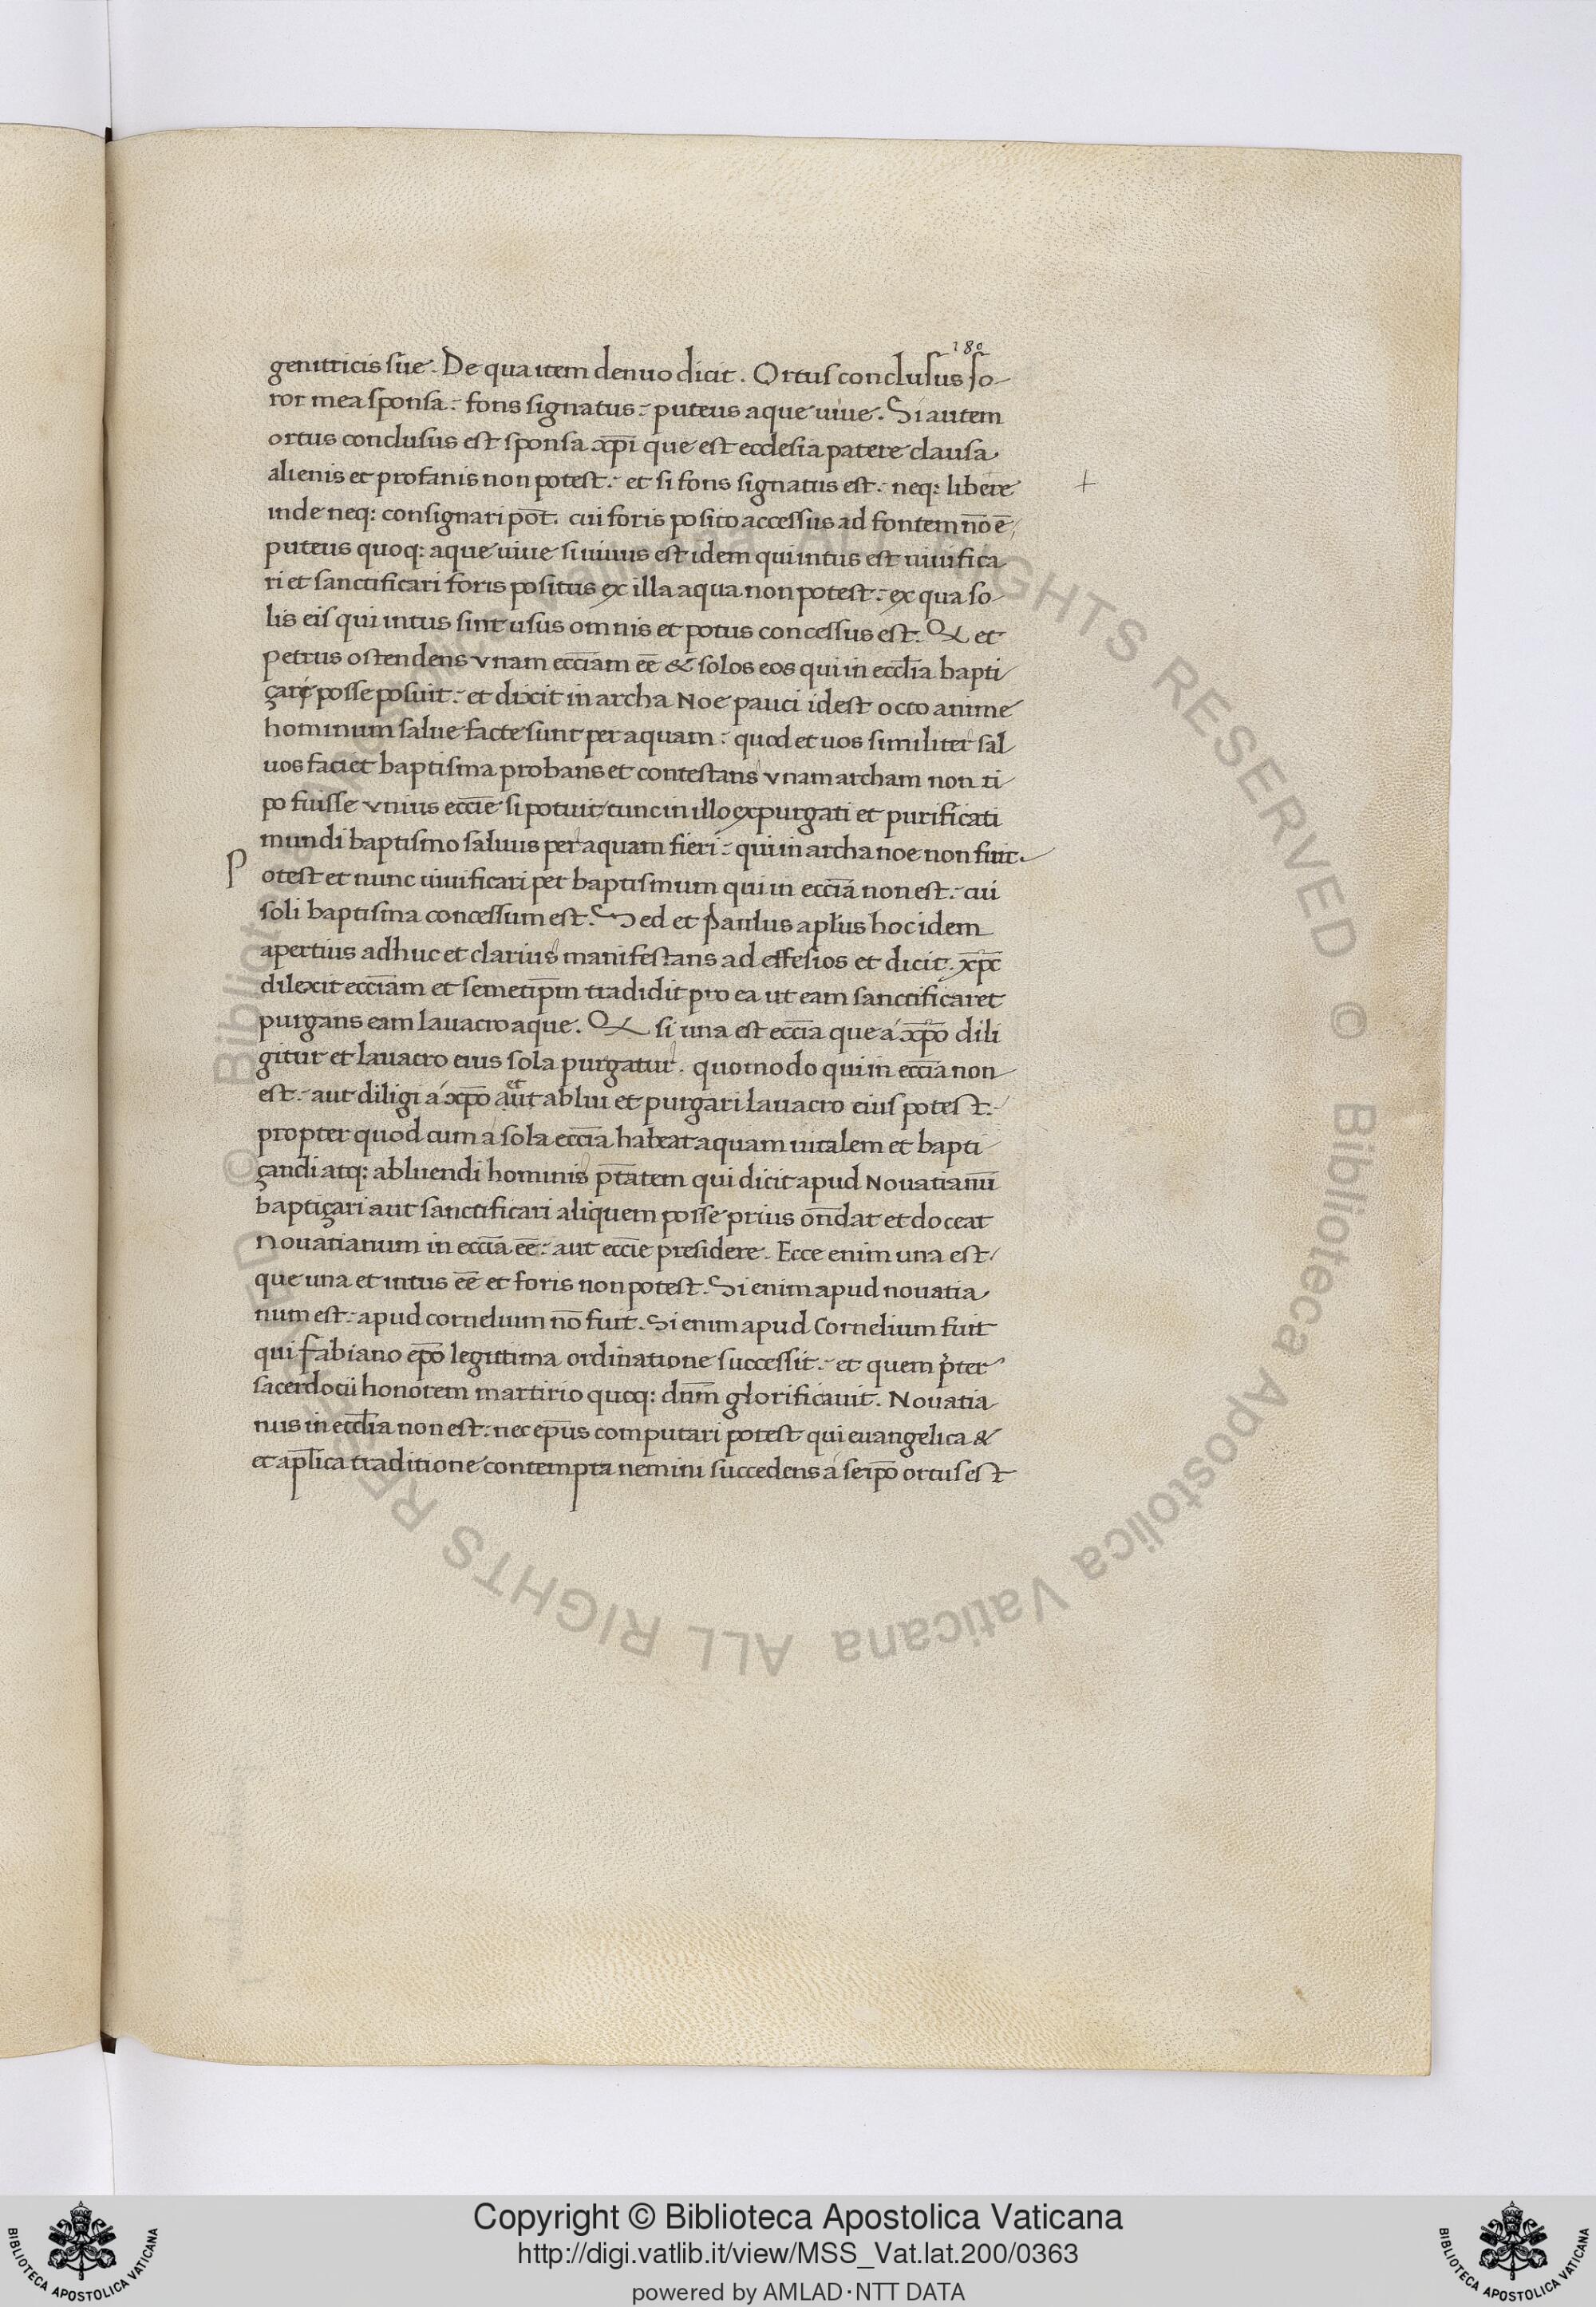 180
genitricis sue. De qua item denuo dicit. Ortus conclusus so
ror mea sponsa: fons signatus: puteus aque uiue. Si autem
ortus conclusus est sponsa xp̄i que est ecclesia patere clausa
alienis et profanis non potest: et si fons signatus est: neq: libere
inde neq: consignari pōt. cui foris posito accessus ad fontem nō ē
puteus quoq: aque uiue si uiuus est idem qui intus est uiuifica
ri et sanctificari foris positus ex illa aqua non potest: ex qua so
lis eis qui intus sint usus omnis et potus concessus est. & et
petrus ostendens vnam ecc̄iam eē & solos eos qui in eccl̄ia bapti
çare posse posuit: et dixit in archa Noe pauci idest octo anime
hominum salue facte sunt per aquam: quod et uos similiter sal
uos faciet baptisma probans et contestans vnam archam non ti
po fuisse vnius ecc̄ie si potuit tunc in illo expurgati et purificati
mundi baptismo saluus per aquam fieri: qui in archa noe non fuit.
Potest et nunc uiuificari per baptismum qui in ecc̄ia non est: cui
soli baptisma concessum est. Sed et Paulus apl̄us hoc idem
apertius adhuc et clarius manifestans ad effesios et dicit. xp̄c
dilexit ecc̄iam et semetip̄m tradidit pro ea ut eam sanctificaret
purgans eam lauacro aque. & si una est ecc̄ia que á xp̄o dili
gitur et lauacro eius sola purgatur. quomodo qui in ecc̄ia non
est: aut diligi á xp̄o aut et ablui et purgari lauacro eius potest:
propter quod cum á sola ecc̄ia habeat aquam uitalem et bapti
çandi atq: abluendi hominis p̄tatem qui dicit apud Nouatianū
baptiçari aut sanctificari aliquem posse prius on̄dat et doceat
Nouatianum in ecc̄ia eē: aut ecc̄ie presidere. Ecce enim una est
que una et intus eē et foris non potest. Si enim apud nouatia
num est: apud cornelium nō fuit. Si enim apud Cornelium fuit
qui fabiano ep̄o legitima ordinatione successit: et quem p̄ter
sacerdotii honorem martirio quoq: dn̄m glorificauit. Nouatia
nus in eccl̄ia non est: nec ep̄us computari potest qui euangelica &
et apl̄ica traditione contempta nemini succedens á seip̄o ortus est
+
© Biblioteca Apostolica Vaticana ALL RIGHTS RESERVED
© Biblioteca Apostolica Vaticana ALL RIGHTS RESERVED
Copyright © Biblioteca Apostolica Vaticana
http://digi.vatlib.it/view/MSS_Vat.lat.200/0363
powered by AMLAD·NTT DATA
BIBLIOTECA APOSTOLICA VATICANA
BIBLIOTECA APOSTOLICA VATICANA